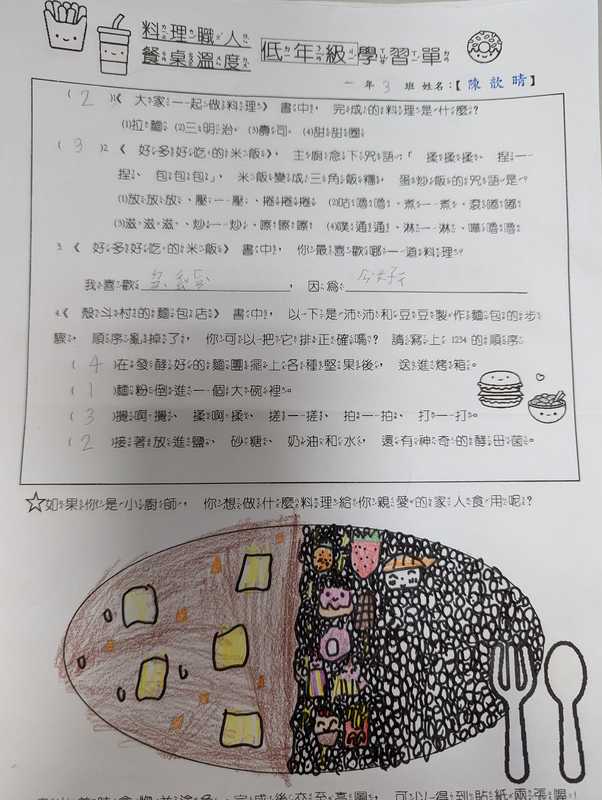 料理職人
餐桌溫度
低年級學習單
一年3班 姓名：【陳歆晴】
(2)1《大家一起做料理》書中，完成的料理是什麼？
(1)拉麵 (2)三明治 (3)壽司 (4)甜甜圈
(3)2《好多好吃的米飯》，主廚念下咒語「揉揉揉、捏一
捏、包包包」，米飯變成三角飯糰，蛋炒飯的咒語是？
(1)放放放、壓一壓、捲捲捲 (2)咕嚕嚕、煮一煮、滾嘟嘟
(3)滋滋滋、炒一炒、嚓嚓嚓 (4)噗通通、淋一淋、嘩嚕嚕
3.《好多好吃的米飯》書中，你最喜歡哪一道料理？
我喜歡，因為
4.《殼斗村的麵包店》書中，以下是沛沛和豆豆製作麵包的步
驟，順序亂掉了，你可以把它排正確嗎？請寫上 1234 的順序
(4)在發酵好的麵團擺上各種堅果後，送進烤箱。
(1)麵粉倒進一個大碗裡。
(3)攪啊攪、揉啊揉、搓一搓、拍一拍、打一打。
(2)接著放進鹽、砂糖、奶油和水，還有神奇的酵母菌。
☆如果你是小廚師，你想做什麼料理給你親愛的家人食用呢？
完成後交至，可以得到貼紙兩張喔